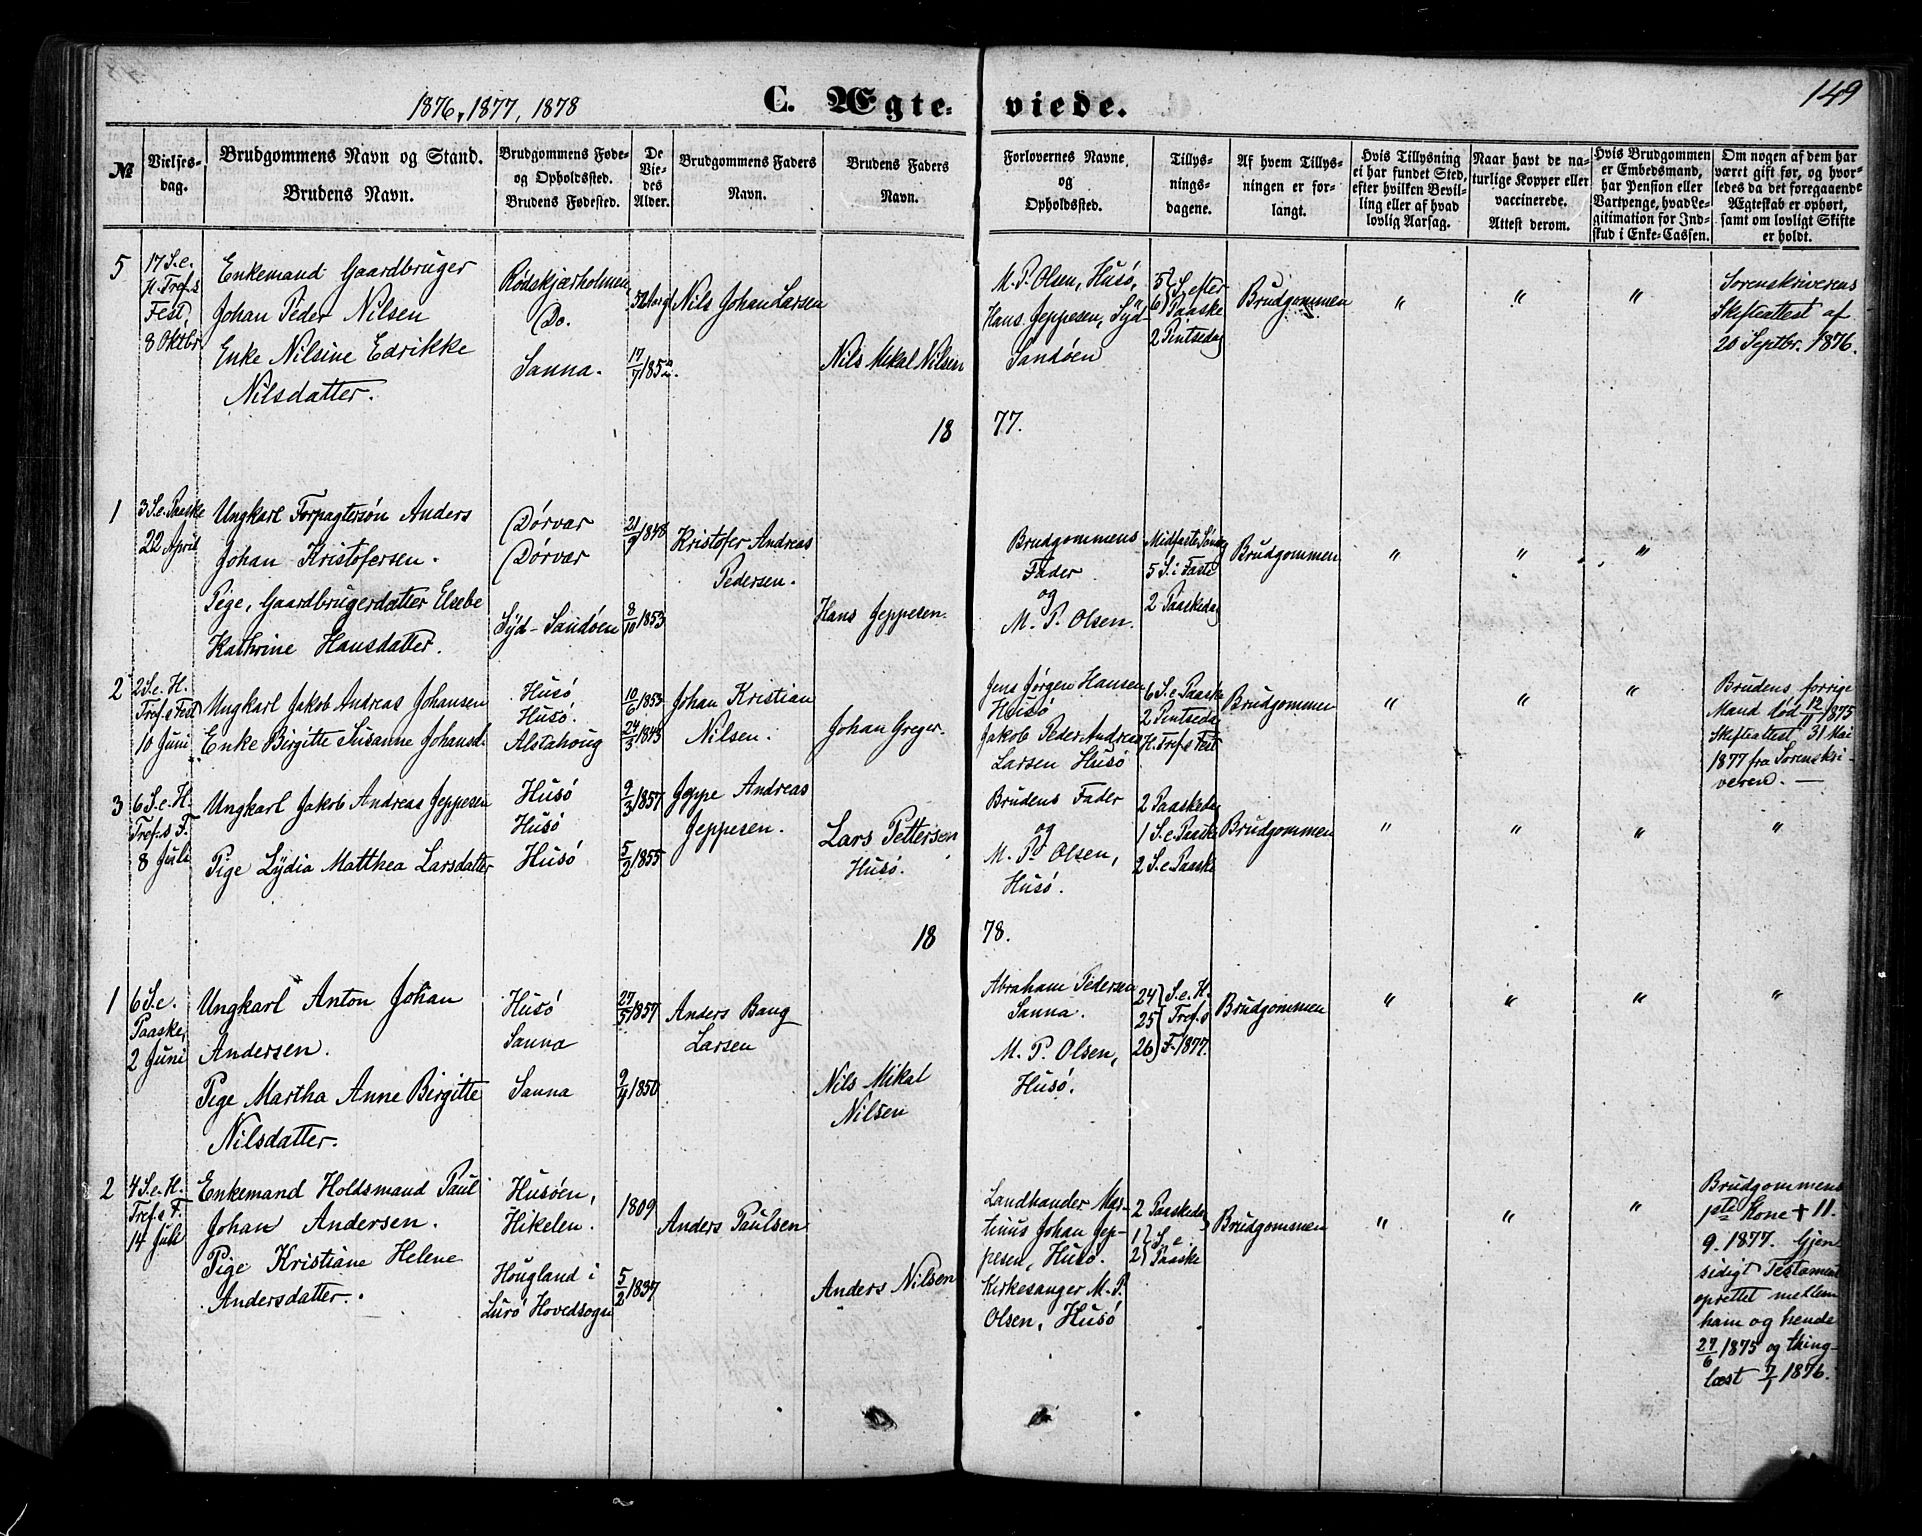 149
1876, 1877, 1878
C. Ægteviede.
№
Vielses-
dag.
Brudgommens Navn og Stand.
Brudens Navn.
Brudgommens Føde-
og Opholdssted.
Brudens Fødested.
De
Vie-
des
Alder.
Brudgommens Faders
Navn.
Brudens Faders
Navn.
Forlovernes Navne
og
Opholdssted.
Tillys-
nings-
dagene.
Af hvem Tillys-
ningen er for-
langt.
Hvis Tillysning
ei har fundet Sted,
efter hvilken Bevil-
ling eller af hvad
lovlig Aarsag.
Naar havt de na-
turlige Kopper eller
vaccinerede.
Attest derom.
Hvis Brudgommen
er Embedsmand,
har Pension eller
Vartpenge, hvad Le-
gitimation for Ind-
skud i Enke-Cassen.
Om nogen af dem har
været gift før, og hvor-
ledes da det foregaaende
Ægteskab er ophørt,
samt om lovligt Skifte
er holdt.
5
17 S. e.
H. Tref.s
Fest,
8 Oktbr
Enkemand Gaardbruger
Johan Peder Nilsen
Enke Nilsine Edrikke
Nilsdatter.
Rødskjærholmen
Do.
Sanna.
17/7 1852
Nils Johan Larsen
Nils Mikal Nilsen
M. P. Olsen, Husø,
Hans Jeppesen, Syd-
Sandøen
5 } S. efter
6 } Paaske
2 Pintsedag
Brudgommen
"
"
"
Sorenskriverens
Skifteattest af
20 Septbr. 1876.
18 77.
1
3 S. e. Paaske
22 April
Ungkarl Forpagtersøn Anders
Johan Kristofersen.
Pige, Gaardbrugerdatter Elsebe
Kathrine Hansdatter.
Dørvar
Dørvar
Syd-Sandøen
21/9 1848
8/10 1853
Kristofer Andreas
Pedersen.
Hans Jeppesen.
Brudgommens
Fader
og
M. P. Olsen.
Midfaste Søndag
5 S. i Faste
2 Paaskedag
Brudgommen
"
"
"
2
2 S. e. H.
Tref.s Fest
10 Juni
Ungkarl Jakob Andreas Johansen
Enke Birgitte Susanne Johansd.
Husø
Husø.
Alstahoug
10/6 1853
24/3 1843
Johan Kristian
Nilsen.
Johan Greger.
Jens Jørgen Hansen
Husø
Jakob Peder Andreas
Larsen Husø
6 S. e. Paaske
2 Pintsedag
H. Tref.s Fest
Brudgommen
"
"
"
Brudens forrige
Mand død 12/11 1875
Skifteattest, 31 Mai
1877 fra Sorenskri-
veren. —
3
6 S. e. H.
Tref.s F.
8 Juli
Ungkarl Jakob Andreas Jeppesen
Pige Lydia Matthea Larsdatter
Husø
Husø
Husø
9/3 1857
5/2 1855
Jeppe Andreas
Jeppesen.
Lars Pettersen
Husø.
Brudens Fader
og
M. P. Olsen,
Husø.
2 Paaskedag
1 S. e. Paaske
2 S. e. Paaske
Brudgommen
"
"
"
"
18 78.
1
6 S. e.
Paaske,
2 Juni
Ungkarl Anton Johan
Andersen.
Pige Martha Anne Birgitte
Nilsdatter.
Husø
Sanna
Sanna
27/5 1857
9/4 1850
Anders Bang
Larsen
Nils Mikal
Nilsen
Abraham Pedersen
Sanna.
M. P. Olsen,
Husø.
24 } S. e. H.
25 } Tref.s
26 } F. 1877.
Brudgommen
"
"
"
"
2
4 S. e. H.
Tref.s F.
14 Juli
Enkemand Holdsmand Paul
Johan Andersen.
Pige Kristiane Helene
Andersdatter.
Husøen,
Hikelen.
Hougland i
Lurø Hovedsogn
1809
5/2 1837
Anders Paulsen
Anders Nilsen
Landhandler Mar-
tinus Johan Jep-
pesen, Husø.
Kirkesanger M. P.
Olsen, Husø
2 Paaskedag
1 } S. e.
2 } Paaske
Brudgommen
"
"
"
Brudgommens
1ste Kone † 11.
9. 1877. Gjen
sidigt Testament
oprettet mellem
ham og hende
27/6 1875 og thing-
læst 7/1 1876.